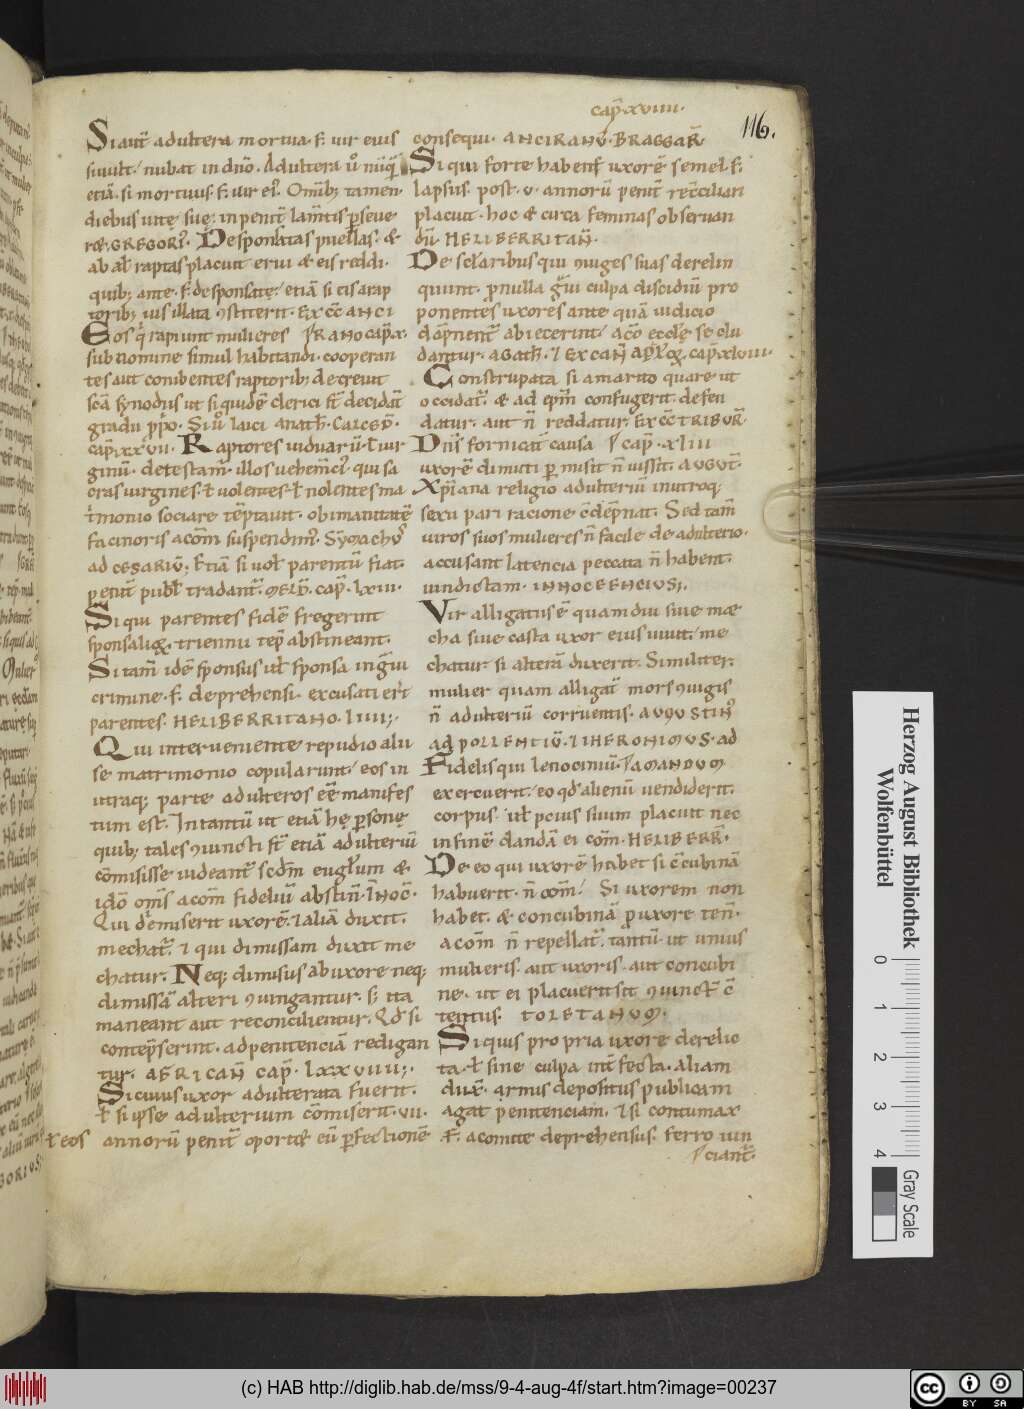 capͥ. xviiii.
116.
Si aut̄ adultera mortua .f. uir eius
si uult / nubat in dn̄o. Adultera u̾o nūq̄
etiā. si mortuus .f. uir ei'. Omīb; tamen
diebus uitę suę; in penit̄ lam̄tis p̲seue
ret. GREGOR'. Desponsatas puellas. &
ab al̄ raptas placuit erui & eis reddi.
quib; ante .f. desponsatę / etiā si eis a rap
torib; uis illata ꝯstiterit. EX CC̄ ANCI
Eos q' rapiunt mulieres RANO cap̄. x.
sub nomine simul habitandi. cooperan
tes aut conibentes raptorib; decreuit
scā synodus ut si quidē clerici st̄ decidāt
gradu pp̄o. Si u̾o laici anath̄. CALCED̄.
cap̄. xxvii. Raptores uiduarū. ł uir
ginū. detestam̄. illos uehem̄ci' qui sa
cras uirgines. ł uolentes ł nolentes ma
t̓monio sociare tēptauit. ob imanitatē
facinoris a com̄ suspendim'. Symach'
ad CESARIV̄; Etiā si uol̄ parentū fiat.
penit̄ publ̄ tradant̄. MELD̄. cap̄. lxiiii.
Si qui parentes fidē fregerint
sponsalioꝝ. triennii tēp̄ abstineant.
Si tam̄ idē sponsus uł sponsa in g̓ui
crimine .f. deprehensi. excusati er̄t
parentes. HELIBERRITANO. liiii;
Qui interueniente repudio alii
se matrimonio copularunt / eos in
utraq; parte adulteros eē manifes
tum est. In tantū ut etiā hę p̲sonę
quib; tales ꝯiuncti st̄ etiā adulteriū
cōmisisse uideant̄ scdm̄ euglīum &
idō om̄s a com̄ fideliū abstin̄. INOC̄.
Qui dimiserit uxorē. & aliā duxit.
mechat̄. & qui dimissam duxit me
chatur. Neq; dimisus ab uxore neq;
dimissā alteri ꝯiungantur. s; ita
maneant aut reconcilientur. Qd̄ si
contēpserint. ad penitenciā redigan
tur. AFRICAN̄ cap̄. lxxviiii;
Si cuius uxor adulterata fuerit.
ł si ipse adulterium cōmiserit. vii.
ł eos
annorū penit̄ oportet eū p̲fectionē
consequi. ANCIRAN̄. BRAGGAR̄.
Si qui forte habent̄ uxorē semel .f.
lapsus. post .v. annorū penit̄ recc̄iliari
placuit. hoc & circa feminas obseruan
dū. HELIBERRITAN̄.
De sclaribus qui ꝯiuges suas derelin
quunt. p̲ nulla g̓ui culpa discidiū pro
ponentes uxores ante quā iudicio
dāpnent̄ abiecerint / a cō eccłę seclu
dantur. AGATH̄. & EX CAN̄ AP̄LOꝜ. cap̄. xlviii.
Construpata si a marito quare ut
occidat̄. & ad ep̄m confugerit. defen
datur. aut n̄ reddatur. EX CC̄ TRIBUR̄.
Dn̄s fornicat̄ causa cap̄. xliii
uxorē dimitti p̲misit n̄ iussit. AUGUT̄.
Xp̄iana religio adulteriū in utroq;
sexu pari racione cōdēpnat. Sed tam̄
uiros suos mulieres n̄ facile de adulterio.
accusant latencia peccata n̄ habent.
uindictam. INNOCENCIUS;
Vir alligatus ē quamdiu siue mæ
cha siue casta uxor eius uiuit / me
chatur si alterā duxerit. Similiter.
mulier quam alligat̄ mors ꝯiugis
n̄ adulteriū corruentis. AUGUSTIN'
AD POLLENTIŪ. & IHERONIMUS. AD
Fidelis qui lenociniū AMANDUM
exercuerit / eo qd̄ alienū uendiderit.
corpus. uł pcius suum placuit nec
in finē dandā ei com̄. HELIBERR̄.
De eo qui uxorē habet si cōcubinā
habuerit. n̄ com̄ / Si uxorem non
habet. & concubinā p̲ uxore ten̄.
a com̄ n̄ repellat̄. tantū ut unius
mulieris. aut uxoris. aut concubi
ne. ut ei placuerit sit ꝯiunct' cō
tentus. TOLETANUM.
Si quis propria uxore derelic
ta. ł sine culpa int̄fecta. aliam
dux̄. armis depositus publicam
agat penitenciam. & si contumax
.f. a comite deprehensus. ferro uin
ciant̄.
Herzog August Bibliothek
Wolfenbüttel
0 1 2 3 4
Gray Scale
(c) HAB http://diglib.hab.de/mss/9-4-aug-4f/start.htm?image=00237
cc BY SA